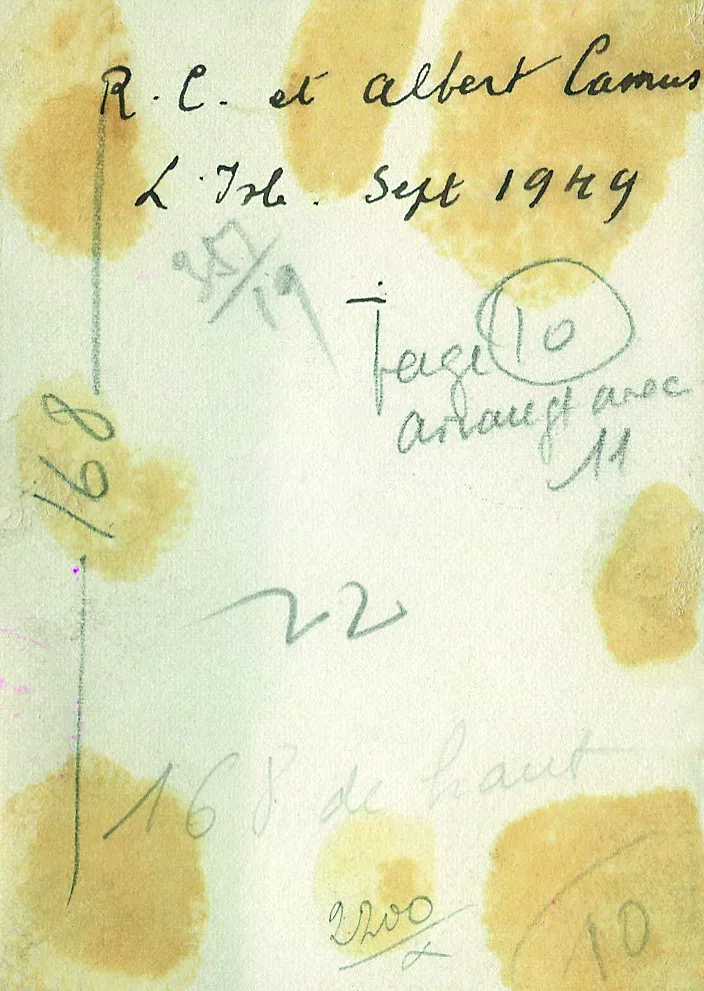 R. C. et Albert Camus
L'Isle. Sept 1949
357/19
page 10
arrangt avec
11
168
22
168 de haut
2200
10